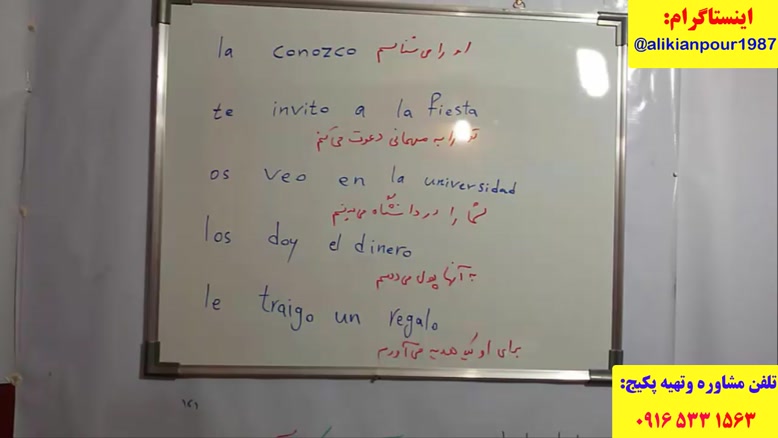 اینستاگرام:
@alikianpour1987
la conozco
او را می شناسم
te invito a la fiesta
تو را به مهمانی دعوت می کنم
os veo en la universidad
شما را در دانشگاه می بینم
los doy el dinero
به آنها پول می دهم
le traigo un regalo
برای او یک هدیه می آورم
تلفن مشاوره وتهیه پکیج:
۰۹۱۶ ۵۳۳ ۱۵۶۳